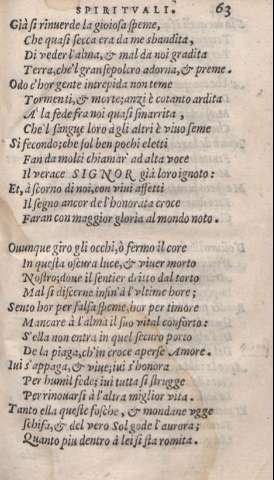 SPIRITVALI. 63
Già si rinuerde la gioiosa speme,
Che quasi secca era da me sbandita,
Di veder l'alma, & mal da noi gradita
Terra, che'l gran sepolcro adorna, & preme.
Odo c'hor gente intrepida non teme
Tormenti, & morte; anzi è cotanto ardita
A' la fede fra noi quasi smarrita,
Che'l sangue loro a gli altri è viuo seme
Sì fecondo; che sol ben pochi eletti
Fan da molti chiamar' ad alta voce
Il verace SIGNOR già loro ignoto:
Et, à scorno di noi, con viui affetti
Il segno ancor de l'honorata croce
Faran con maggior gloria al mondo noto.
Ouunque giro gli occhi, ò fermo il core
In questa oscura luce, & viuer morto
Nostro; doue il sentier dritto dal torto
Mal si discerne insin' à l'vltime hore;
Sento hor per falsa speme, hor per timore
Mancare à l'alma il suo vital conforto:
S'ella non entra in quel securo porto
De la piaga, ch'in croce aperse Amore.
Iui s'appaga, & viue; iui s'honora
Per humil fede; iui tutta si strugge
Per rinouarsi à l'altra miglior vita.
Tanto ella queste fosche, & mondane vgge
Schifa, & del vero Sol gode l'aurora;
Quanto piu dentro à lei si sta romita.